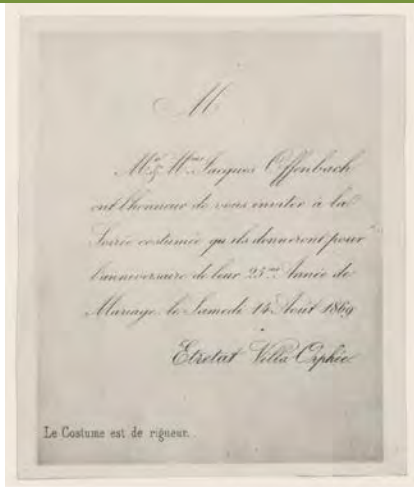 M
Mr & Mme Jacques Offenbach
ont l'honneur de vous inviter à la
Soirée costumée qu'ils donneront pour
l'anniversaire de leur 25me Année de
Mariage, le Samedi 14 Août 1869
Etretat Villa Orphée
Le Costume est de rigueur.